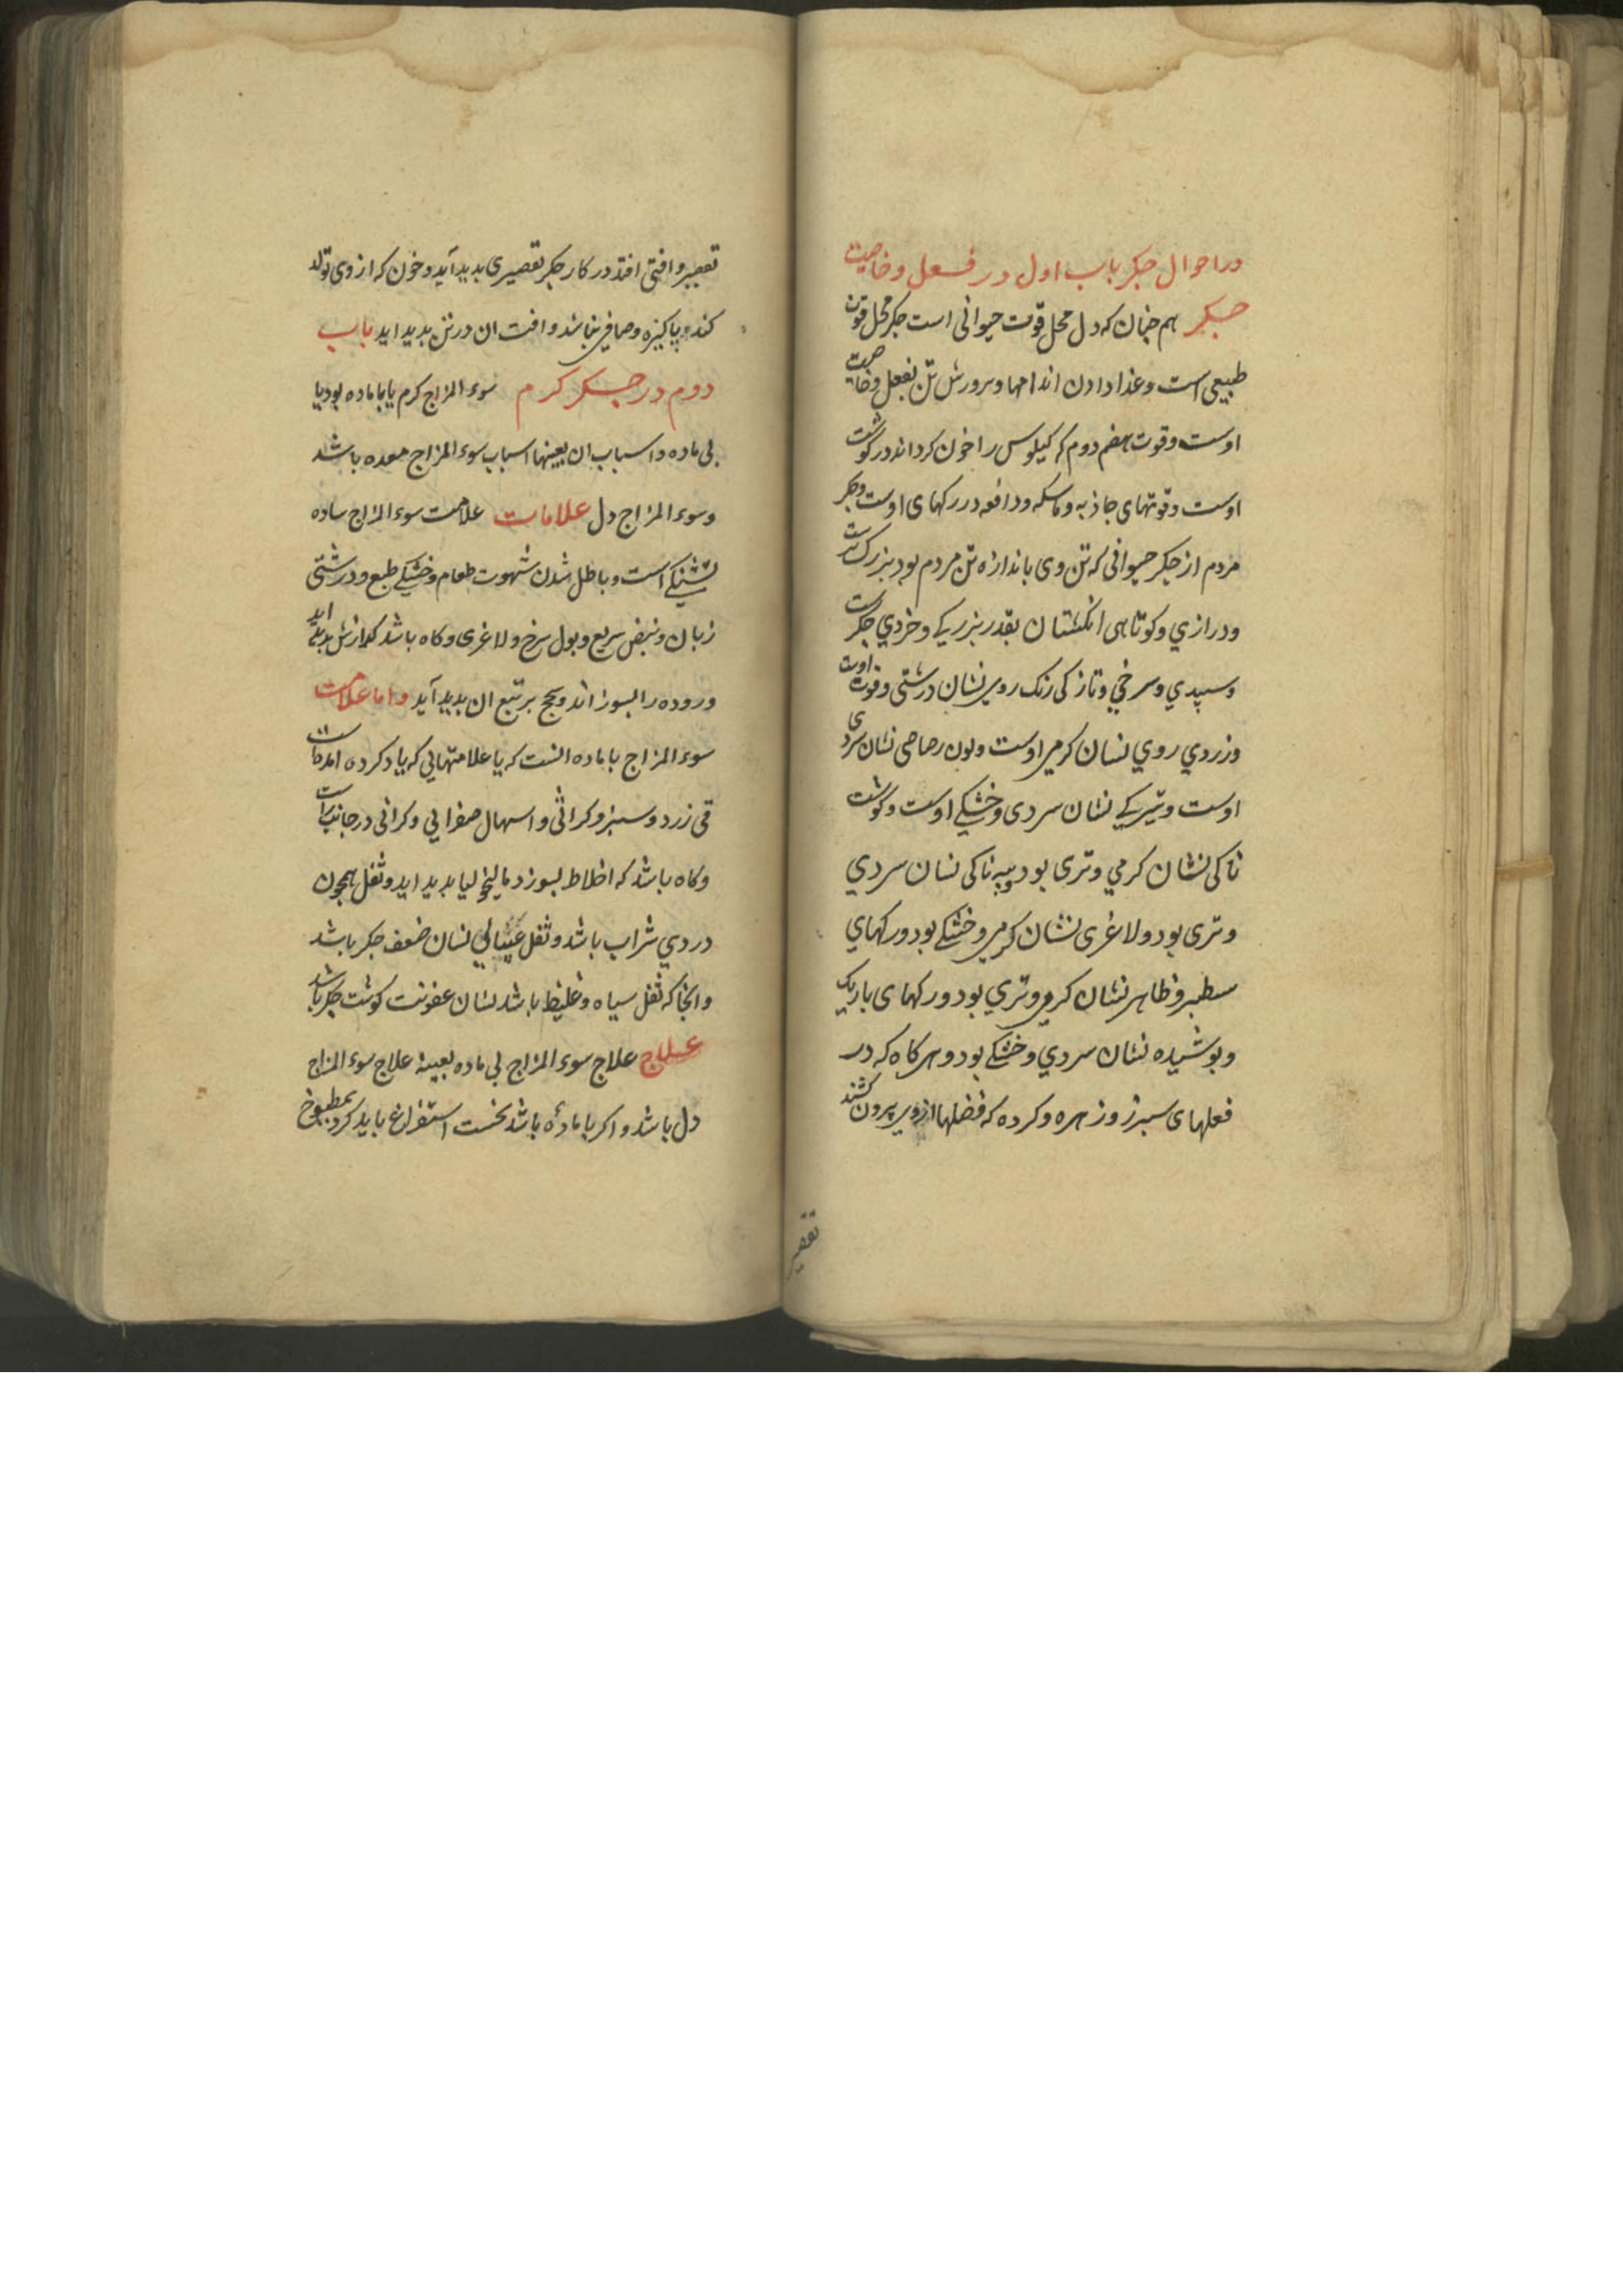 در احوال جکر باب اول در فعل و خاصیت
جکر هم چنان که دل محل قوت حیوانی است جکر محل قوت
طبیعی است و غذا دادن اندامها و پرورش تن بفعل و خاصیت
اوست و قوت هضم دوم که کیلوس را خون کرداند در کوشت
اوست و قوتهای جاذبه و ماسکه و دافعه در رکهای اوست و جکر
مردم از جکر حیوانی که تن وی باندازه تن مردم بود بزرکترست
و درازي و کوتاهی انکشتان بقدر بزرکی و خردي جکرست
و سپیدي و سرخي و تازکی رنک روی نشان درستی و قوت اوست
و زردي روي نشان کرمی اوست و لون رصاصی نشان سردی
اوست و تیرکی نشان سردی و خشکی اوست و کوشت
ناکی نشان کرمي و تری بود و پیه ناکی نشان سردي
و تری بود و لاغری نشان کرمی و خشکی بود و رکهاي
سطبر و ظاهر نشان کرمی و تري بود و رکهای باریک
و پوشیده نشان سردي و خشکی بود و هرکاه که در
فعلهای سپرز و زهره و کرده که فضلها از وی بیرون کشند
تقصیر
تقصیر و افتی افتد در کار جکر تقصیری پدید آید و خون که از وی تولد
کند پاکیزه و صافی نباشد و افت ان در تن پدید اید باب
دوم در جکر کرم سوء المزاج کرم یا با ماده بود یا
بی ماده و اسباب ان بعینها اسباب سوء المزاج معده باشد
و سوء المزاج دل علامات علامت سوء المزاج ساده
تشنکی است و باطل شدن شهوت طعام و خشکی طبع و درشتی
زبان و نبض سریع و بول سرخ و لاغری و کاه باشد کدازش پدید اید
و روده را بسوزاند و سحج بر تبع ان پدید آید و اما علامت
سوء المزاج با ماده انست که با علامتهایي که یاد کرده امد
قی زرد و سبز و کراثی و اسهال صفرایي و کرانی در جانب راست
و کاه باشد که اخلاط بسوزد و مالیخولیا پدید اید و ثفل همچون
دردي شراب باشد و ثفل غسالي نشان ضعف جکر باشد
و انجا که ثفل سیاه و غلیظ باشد نشان عفونت کوشت جکر باشد
علاج علاج سوء المزاج بی ماده بعینه علاج سوء المزاج
دل باشد و اکر با ماده باشد نخست استفراغ باید کرد بمطبوخ